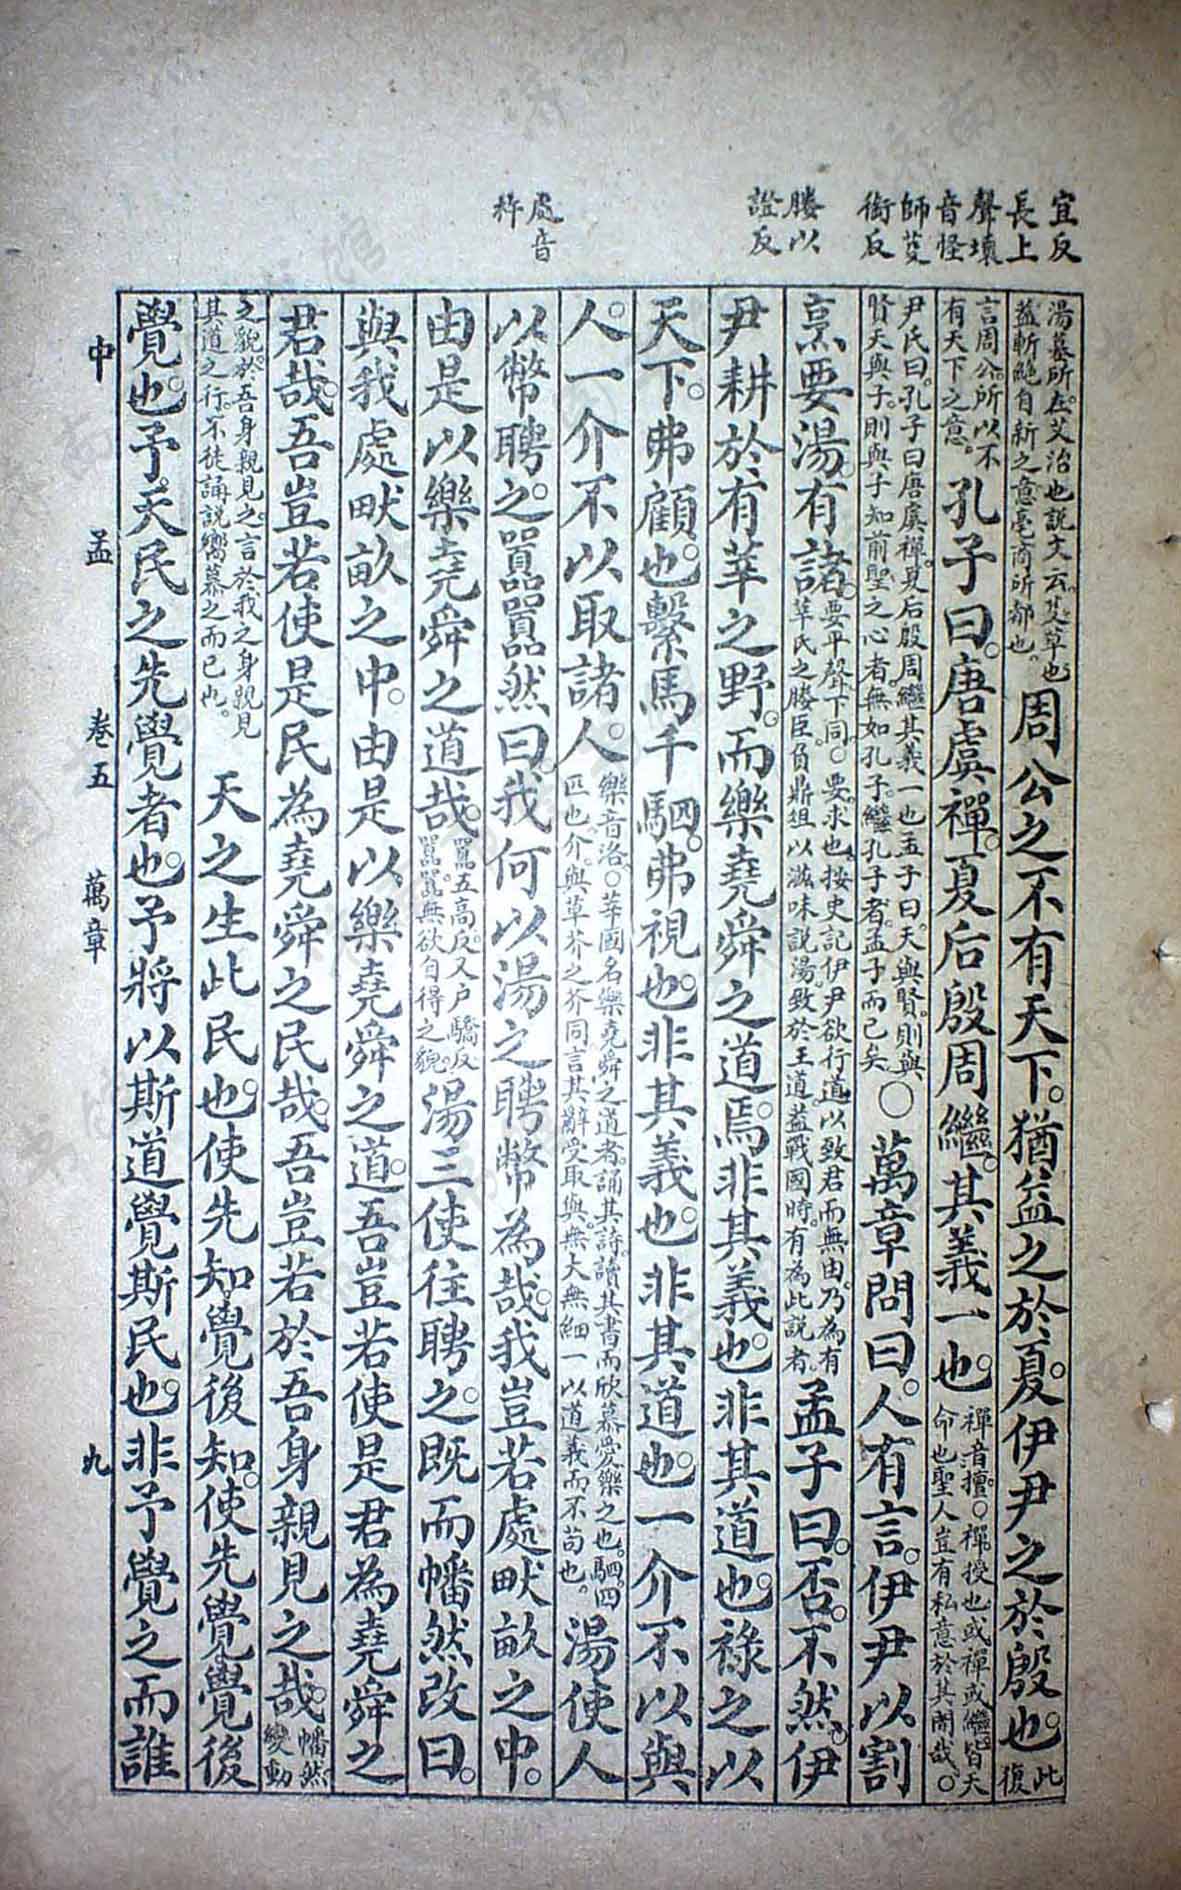 宜反
長上
聲壞
音怪
師芟
銜反
媵以
證反
處音
杵
湯墓所在艾治也說文云芟草也
蓋斬絕自新之意亳商所都也
周公之不有天下猶益之於夏伊尹之於殷也
此復
言周公所以不
有天下之意
孔子曰唐虞禪夏后殷周繼其義一也
禪音擅○禪授也或禪或繼皆天
命也聖人豈有私意於其間哉○
尹氏曰孔子曰唐虞禪夏后殷周繼其義一也孟子曰天與賢則與
賢天與子則與子知前聖之心者無如孔子繼孔子者孟子而已矣
○萬章問曰人有言伊尹以割
烹要湯有諸
要平聲下同○要求也按史記伊尹欲行道以致君而無由乃為有
莘氏之媵臣負鼎俎以滋味說湯致於王道蓋戰國時有為此說者
孟子曰否不然伊
尹耕於有莘之野而樂堯舜之道焉非其義也非其道也祿之以
天下弗顧也繫馬千駟弗視也非其義也非其道也一介不以與
人一介不以取諸人
樂音洛○莘國名樂堯舜之道者誦其詩讀其書而欣慕愛樂之也駟四
匹也介與草芥之芥同言其辭受取與無大無細一以道義而不苟也
湯使人
以幣聘之囂囂然曰我何以湯之聘幣為哉我豈若處畎畝之中
由是以樂堯舜之道哉
囂五高反又戶驕反
囂囂無欲自得之貌
湯三使往聘之既而幡然改曰
與我處畎畝之中由是以樂堯舜之道吾豈若使是君為堯舜之
君哉吾豈若使是民為堯舜之民哉吾豈若於吾身親見之哉
幡然
變動
之貌於吾身親見之言於我之身親見
其道之行不徒誦說嚮慕之而已也
天之生此民也使先知覺後知使先覺覺後
覺也予天民之先覺者也予將以斯道覺斯民也非予覺之而誰
中 孟 卷五 萬章 九